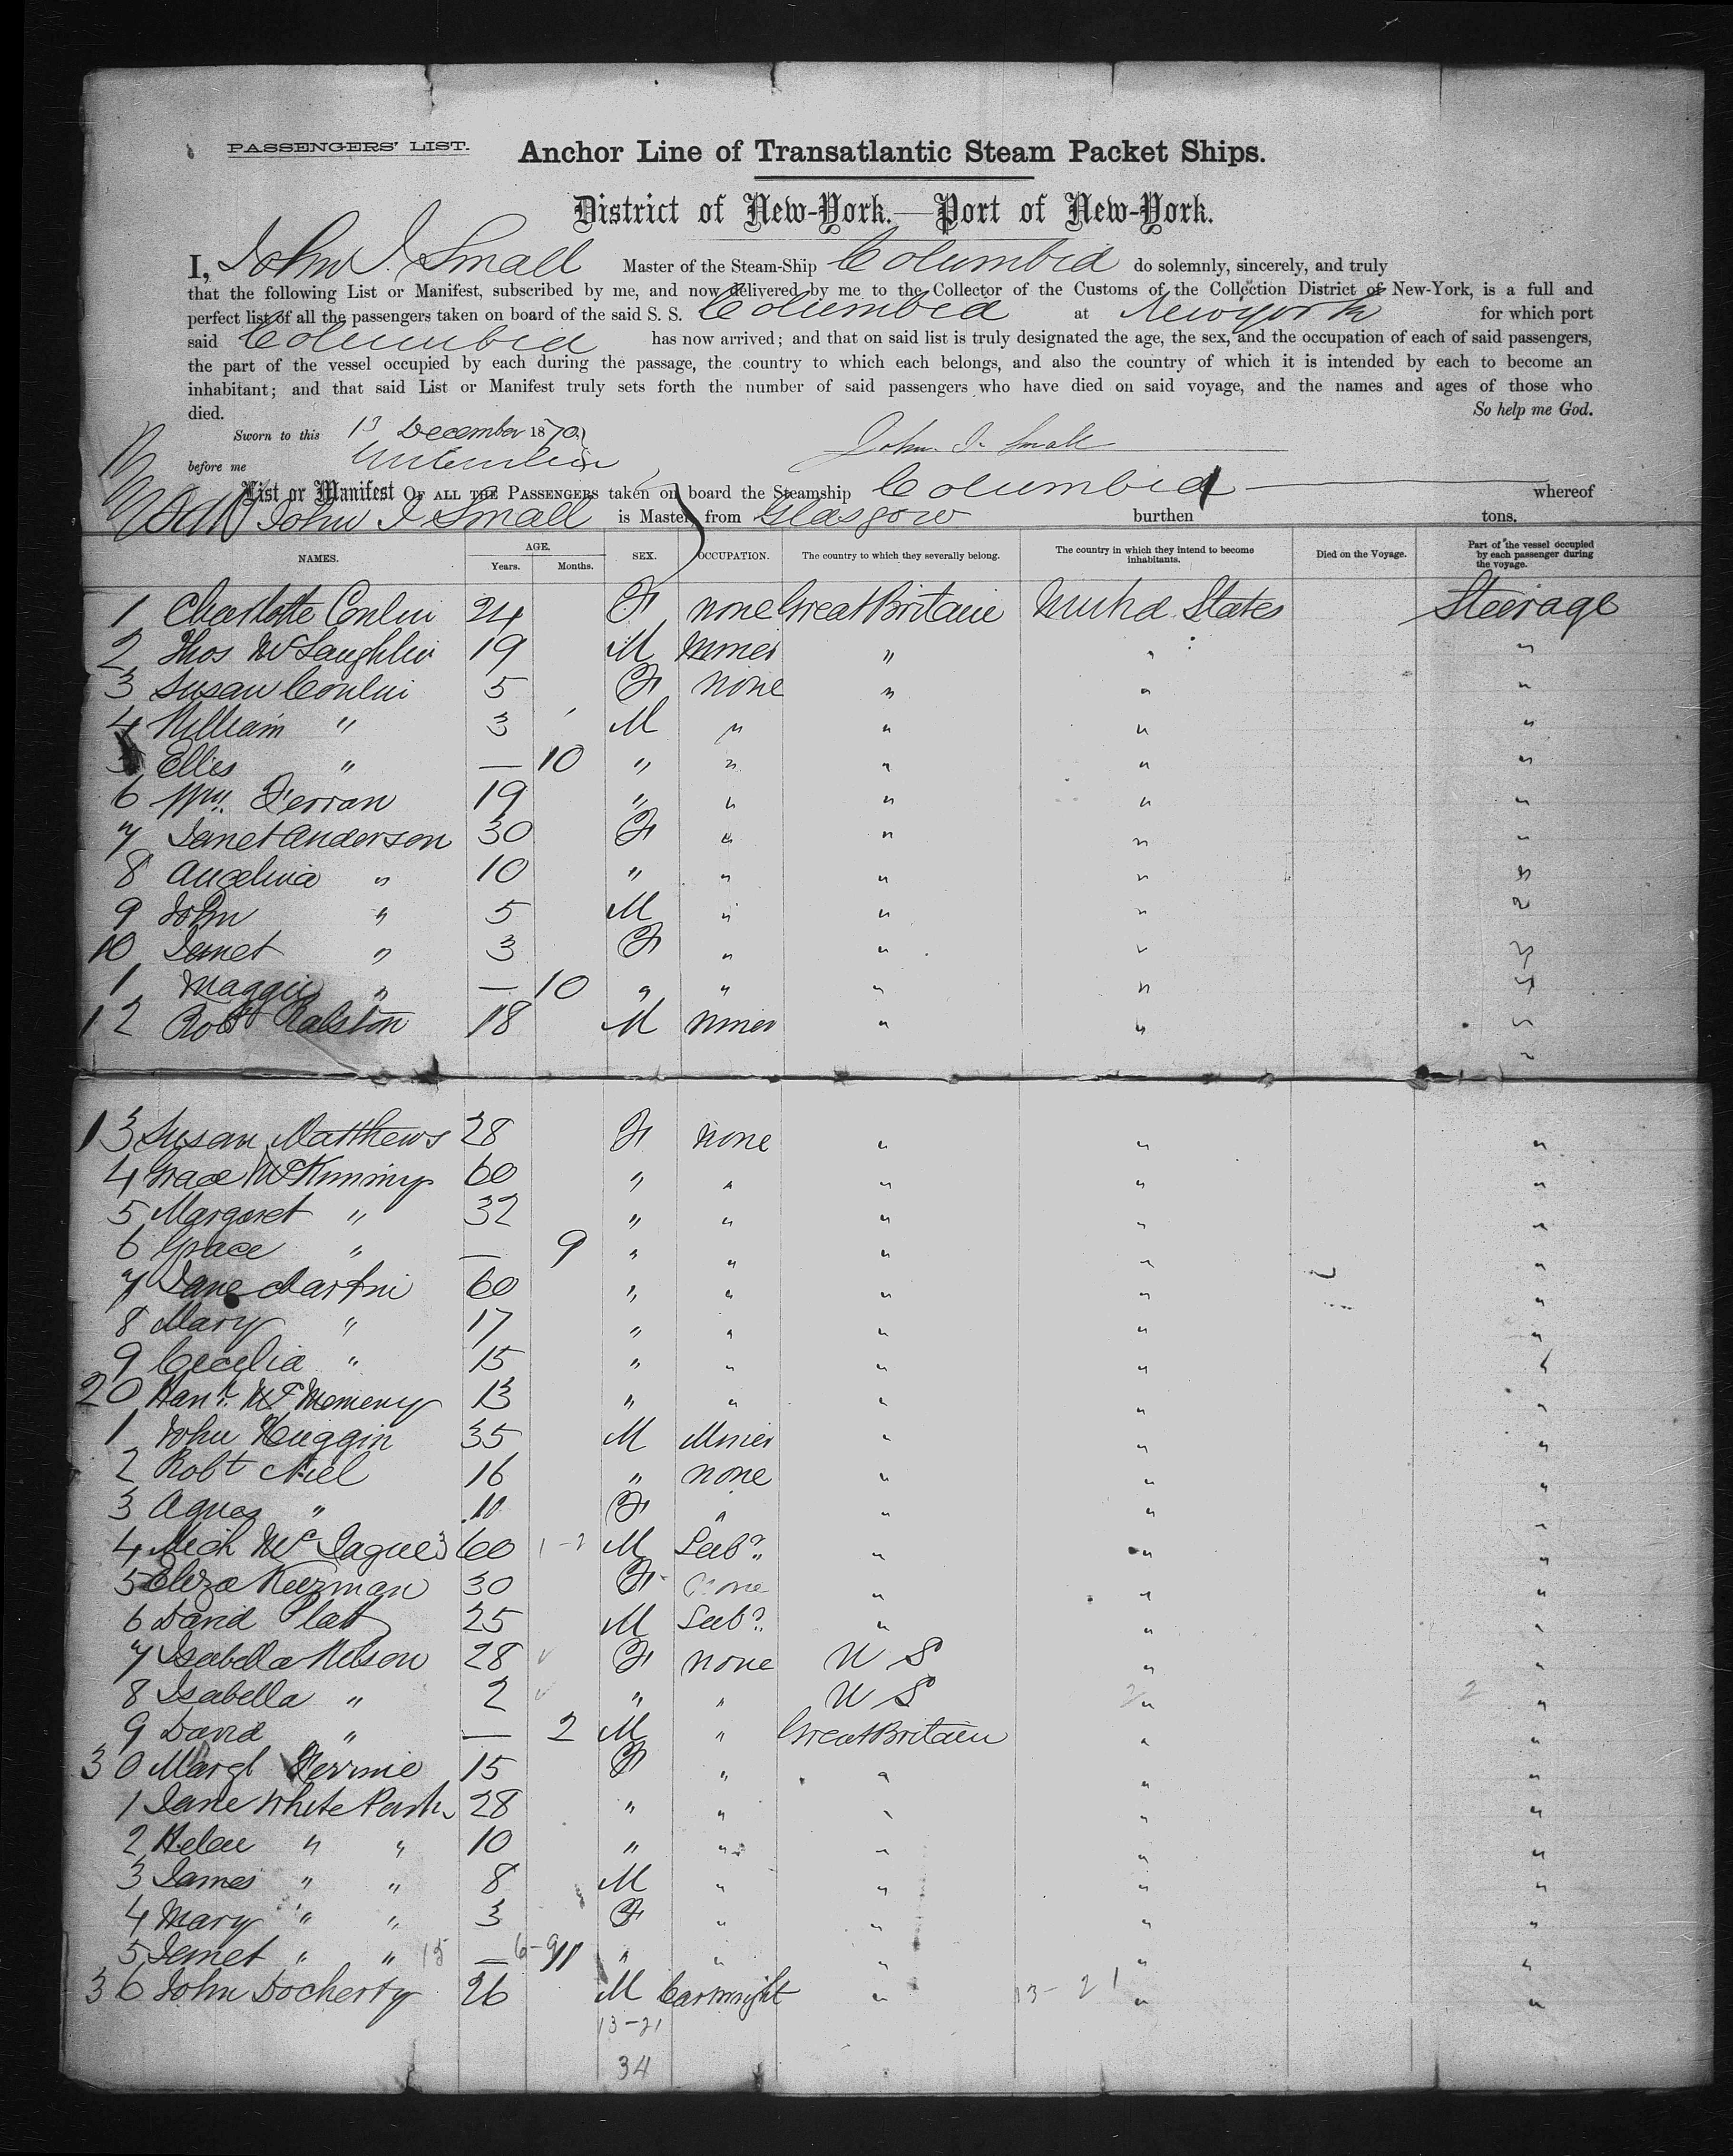 PASSENGERS' LIST.
Anchor Line of Transatlantic Steam Packet Ships.
District of New-York.—Port of New-York.
I, John J. Small Master of the Steam-Ship Columbia do solemnly, sincerely, and truly
that the following List or Manifest, subscribed by me, and now delivered by me to the Collector of the Customs of the Collection District of New-York, is a full and
perfect list of all the passengers taken on board of the said S. S. Columbia at New york for which port
said Columbia has now arrived; and that on said list is truly designated the age, the sex, and the occupation of each of said passengers,
the part of the vessel occupied by each during the passage, the country to which each belongs, and also the country of which it is intended by each to become an
inhabitant; and that said List or Manifest truly sets forth the number of said passengers who have died on said voyage, and the names and ages of those who
died. So help me God.
Sworn to this 13 December 1870 John J. Small
before me
List or Manifest OF ALL THE PASSENGERS taken on board the Steamship Columbia whereof
John J Small is Master, from Glasgow burthen tons.
NAMES. AGE. Years. Months. SEX. OCCUPATION. The country to which they severally belong. The country in which they intend to become inhabitants. Died on the Voyage. Part of the vessel occupied by each passenger during the voyage.
1 Charlotte Conlin 24 F none Great Britain United States Steerage
2 Thos McLaughlin 19 M Miner " " "
3 Susan Conlin 5 F none " " "
4 William " 3 M " " " "
5 Ellis " — 10 " " " " "
6 Wm Ferran 19 " " " " "
7 Janet Anderson 30 F " " " "
8 Angelina " 10 " " " " "
9 John " 5 M " " " "
10 Janet " 3 F " " " "
1 Maggie " — 10 " " " " "
12 Robt Ralston 18 M Miner " " "
13 Susan Matthews 28 F none " " "
4 Grace McKinning 60 " " " " "
5 Margaret " 32 " " " " "
6 Grace " — 9 " " " " "
7 Jane Martin 60 " " " " "
8 Mary " 17 " " " " "
9 Cecelia " 15 " " " " "
20 Hanh McMemeny 13 " " " " "
1 John Huggin 35 M Miner " " "
2 Robt Niel 16 " none " " "
3 Agnes " 11 F " " " "
4 Mich McTague 60 M Labr " " "
5 Eliza Keezman 30 F none " " "
6 David Platt 25 M Labr " " "
7 Isabella Nelson 28 F none U S " "
8 Isabella " 2 " " U S " "
9 David " — 2 M " Great Britain " "
30 Margt 15 F " " " "
1 Jane White Park 28 " " " " "
2 Helen " " 10 " " " " "
3 James " " 8 M " " " "
4 Mary " " 3 F " " " "
5 Jemet " " 15 — 6-9 11 " " " " "
36 John Docherty 26 M Cartwright " 13-21 " "
13-21
34